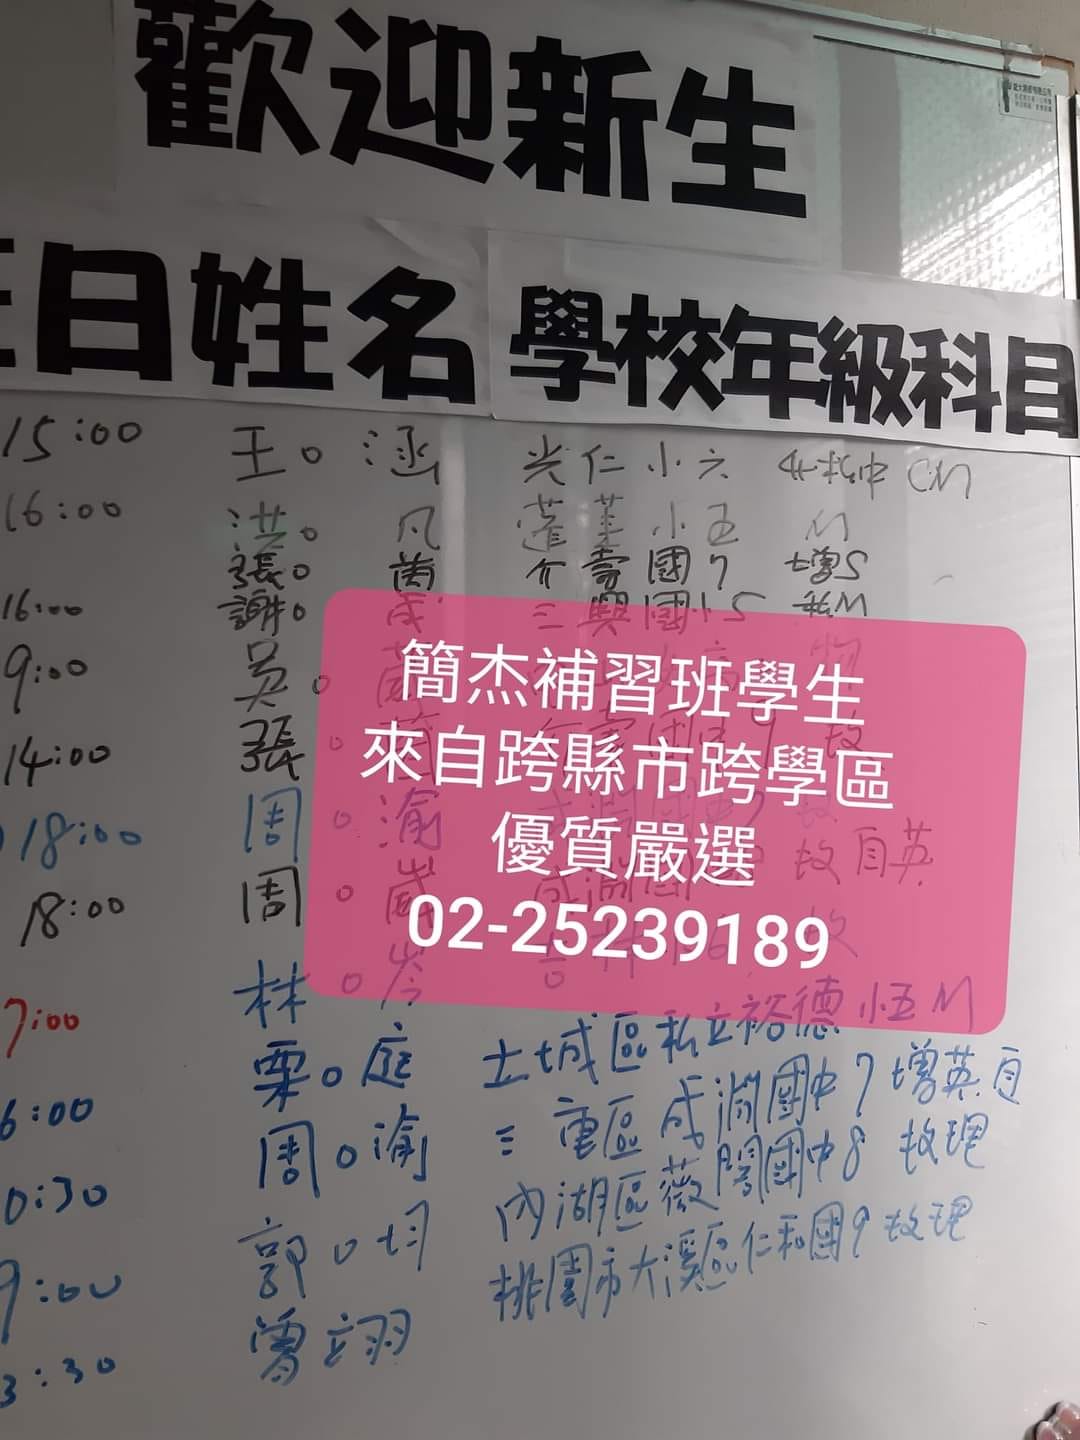 歡迎新生
日姓名 學校年級科目
15:00 王o涵 光仁小六 CM
16:00 洪o凡 蓬萊小五 M
張o茵 介壽國7 增S
16:00 謝o成 三興國小5 私M
9:00 吳o
14:00 張o
18:00 周o渝
18:00 周o崴 數自英
7:00 林o岑
簡杰補習班學生
來自跨縣市跨學區
優質嚴選
02-25239189
6:00 栗o庭 土城區私立裕德小五M
0:30 周o渝 三重區成淵國中7增英自
9:00 郭o均 內湖區薇閣國中8 數理
3:30 曾立翔 桃園市大溪區仁和國9數理